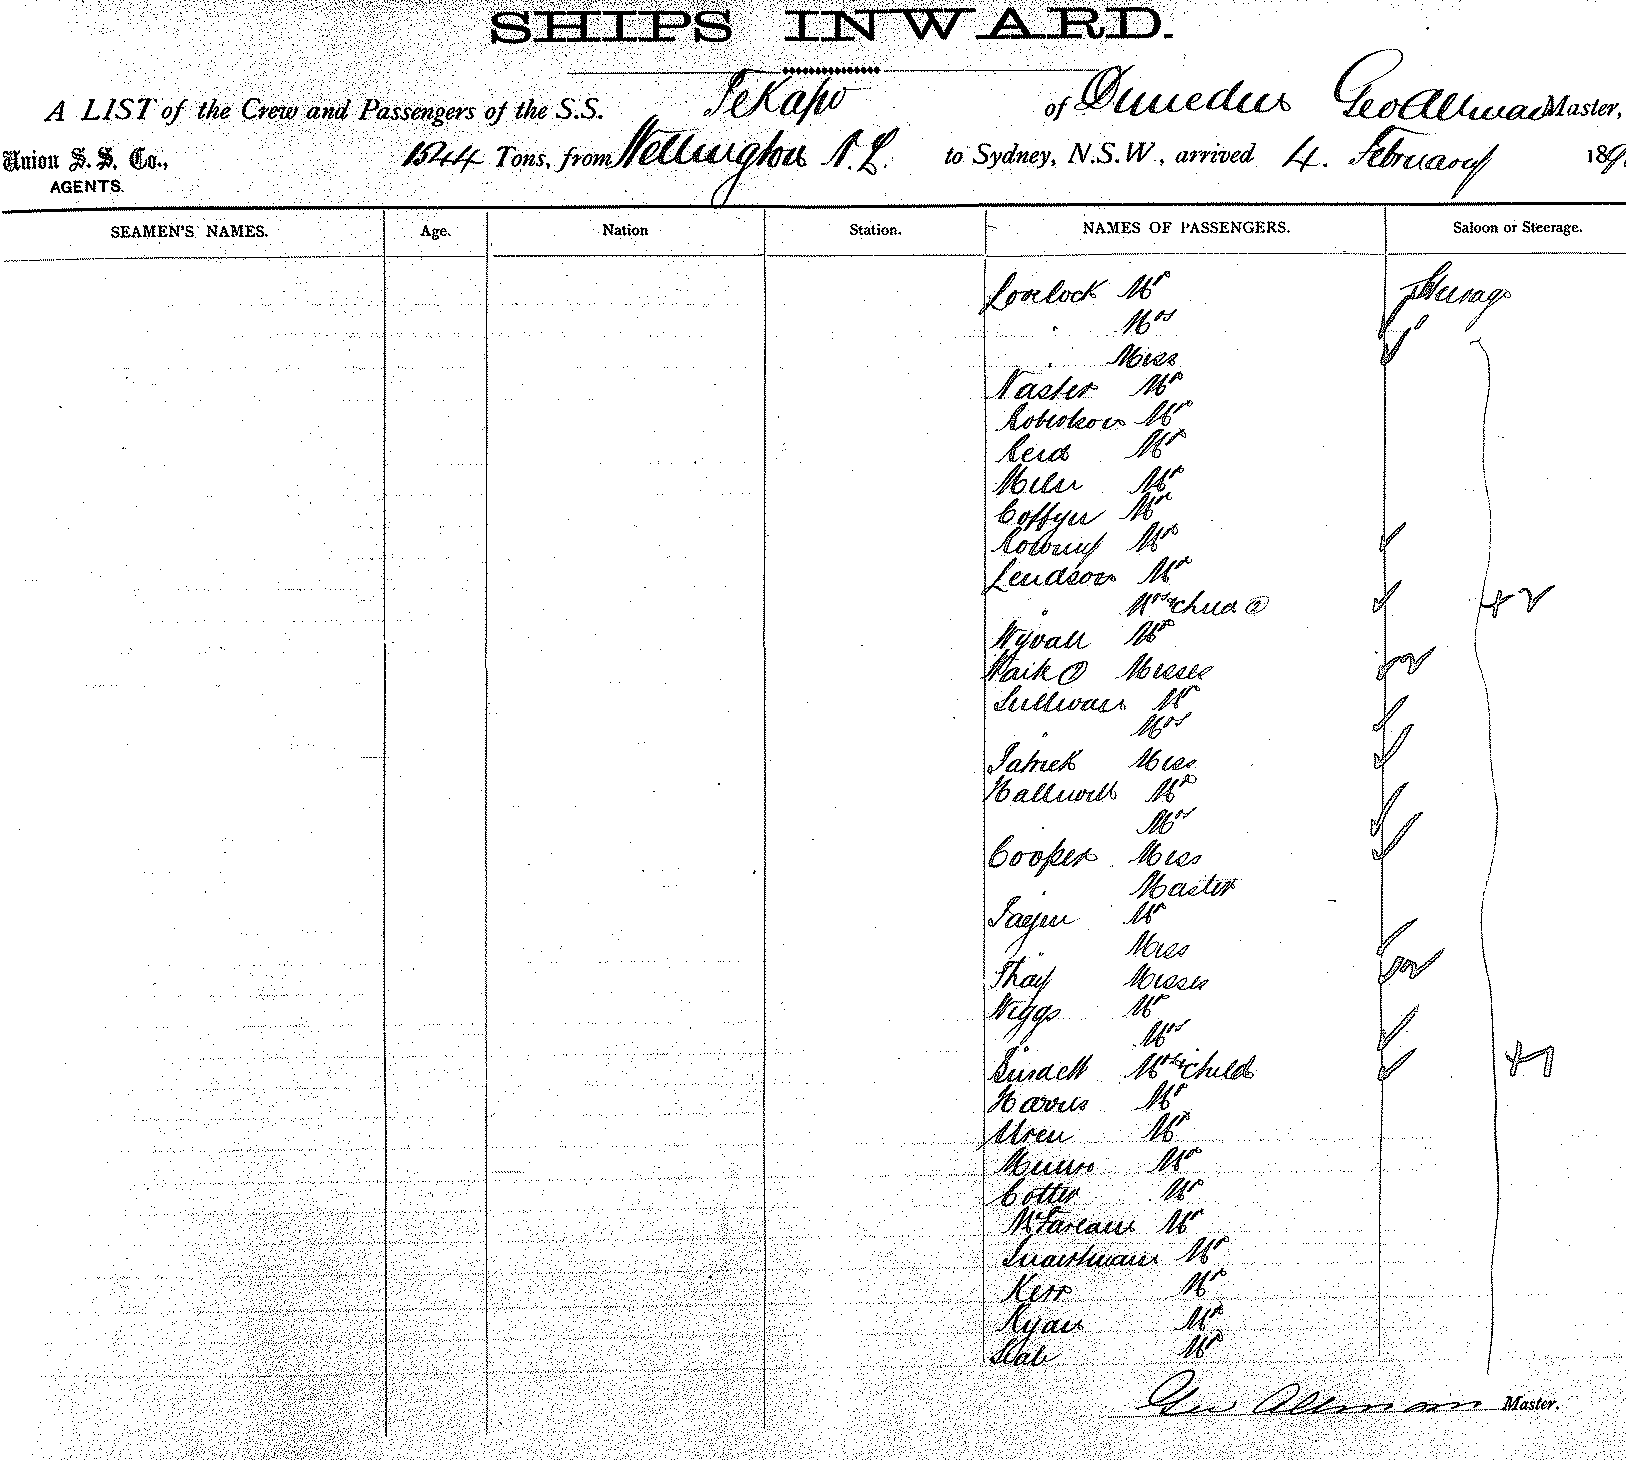 SHIPS INWARD.
A LIST of the Crew and Passengers of the S.S. TeKapo of Dunedin Geo Allman Master,
Union S. S. Co., 1544 Tons, from Wellington N.Z. to Sydney, N.S.W., arrived 4. February 189
AGENTS.
SEAMEN'S NAMES. Age. Nation Station. NAMES OF PASSENGERS. Saloon or Steerage.
Lovelock Mr Steerage
" Mrs "
" Miss
Naster Mr
Robertson Mr
Reid Mr
Milne Mr
Coffyn Mr
Mr
Lendson Mr
" Mrs & child + 2
Wyvall Mr
Waik Misses
Sullivan Mr
" Mrs
Patrick Miss
Halliwell Mr
" Mrs
Cooper Miss
" Master
Mr
" Miss
Thay Misses
Wiggs Mr
" Mrs
Burdett Mrs & child + 1
Harris Mr
Uren Mr
Munro Mr
Cotter Mr
McFarlane Mr
Mr
Kerr Mr
Ryan Mr
Mr
Geo Allman Master.